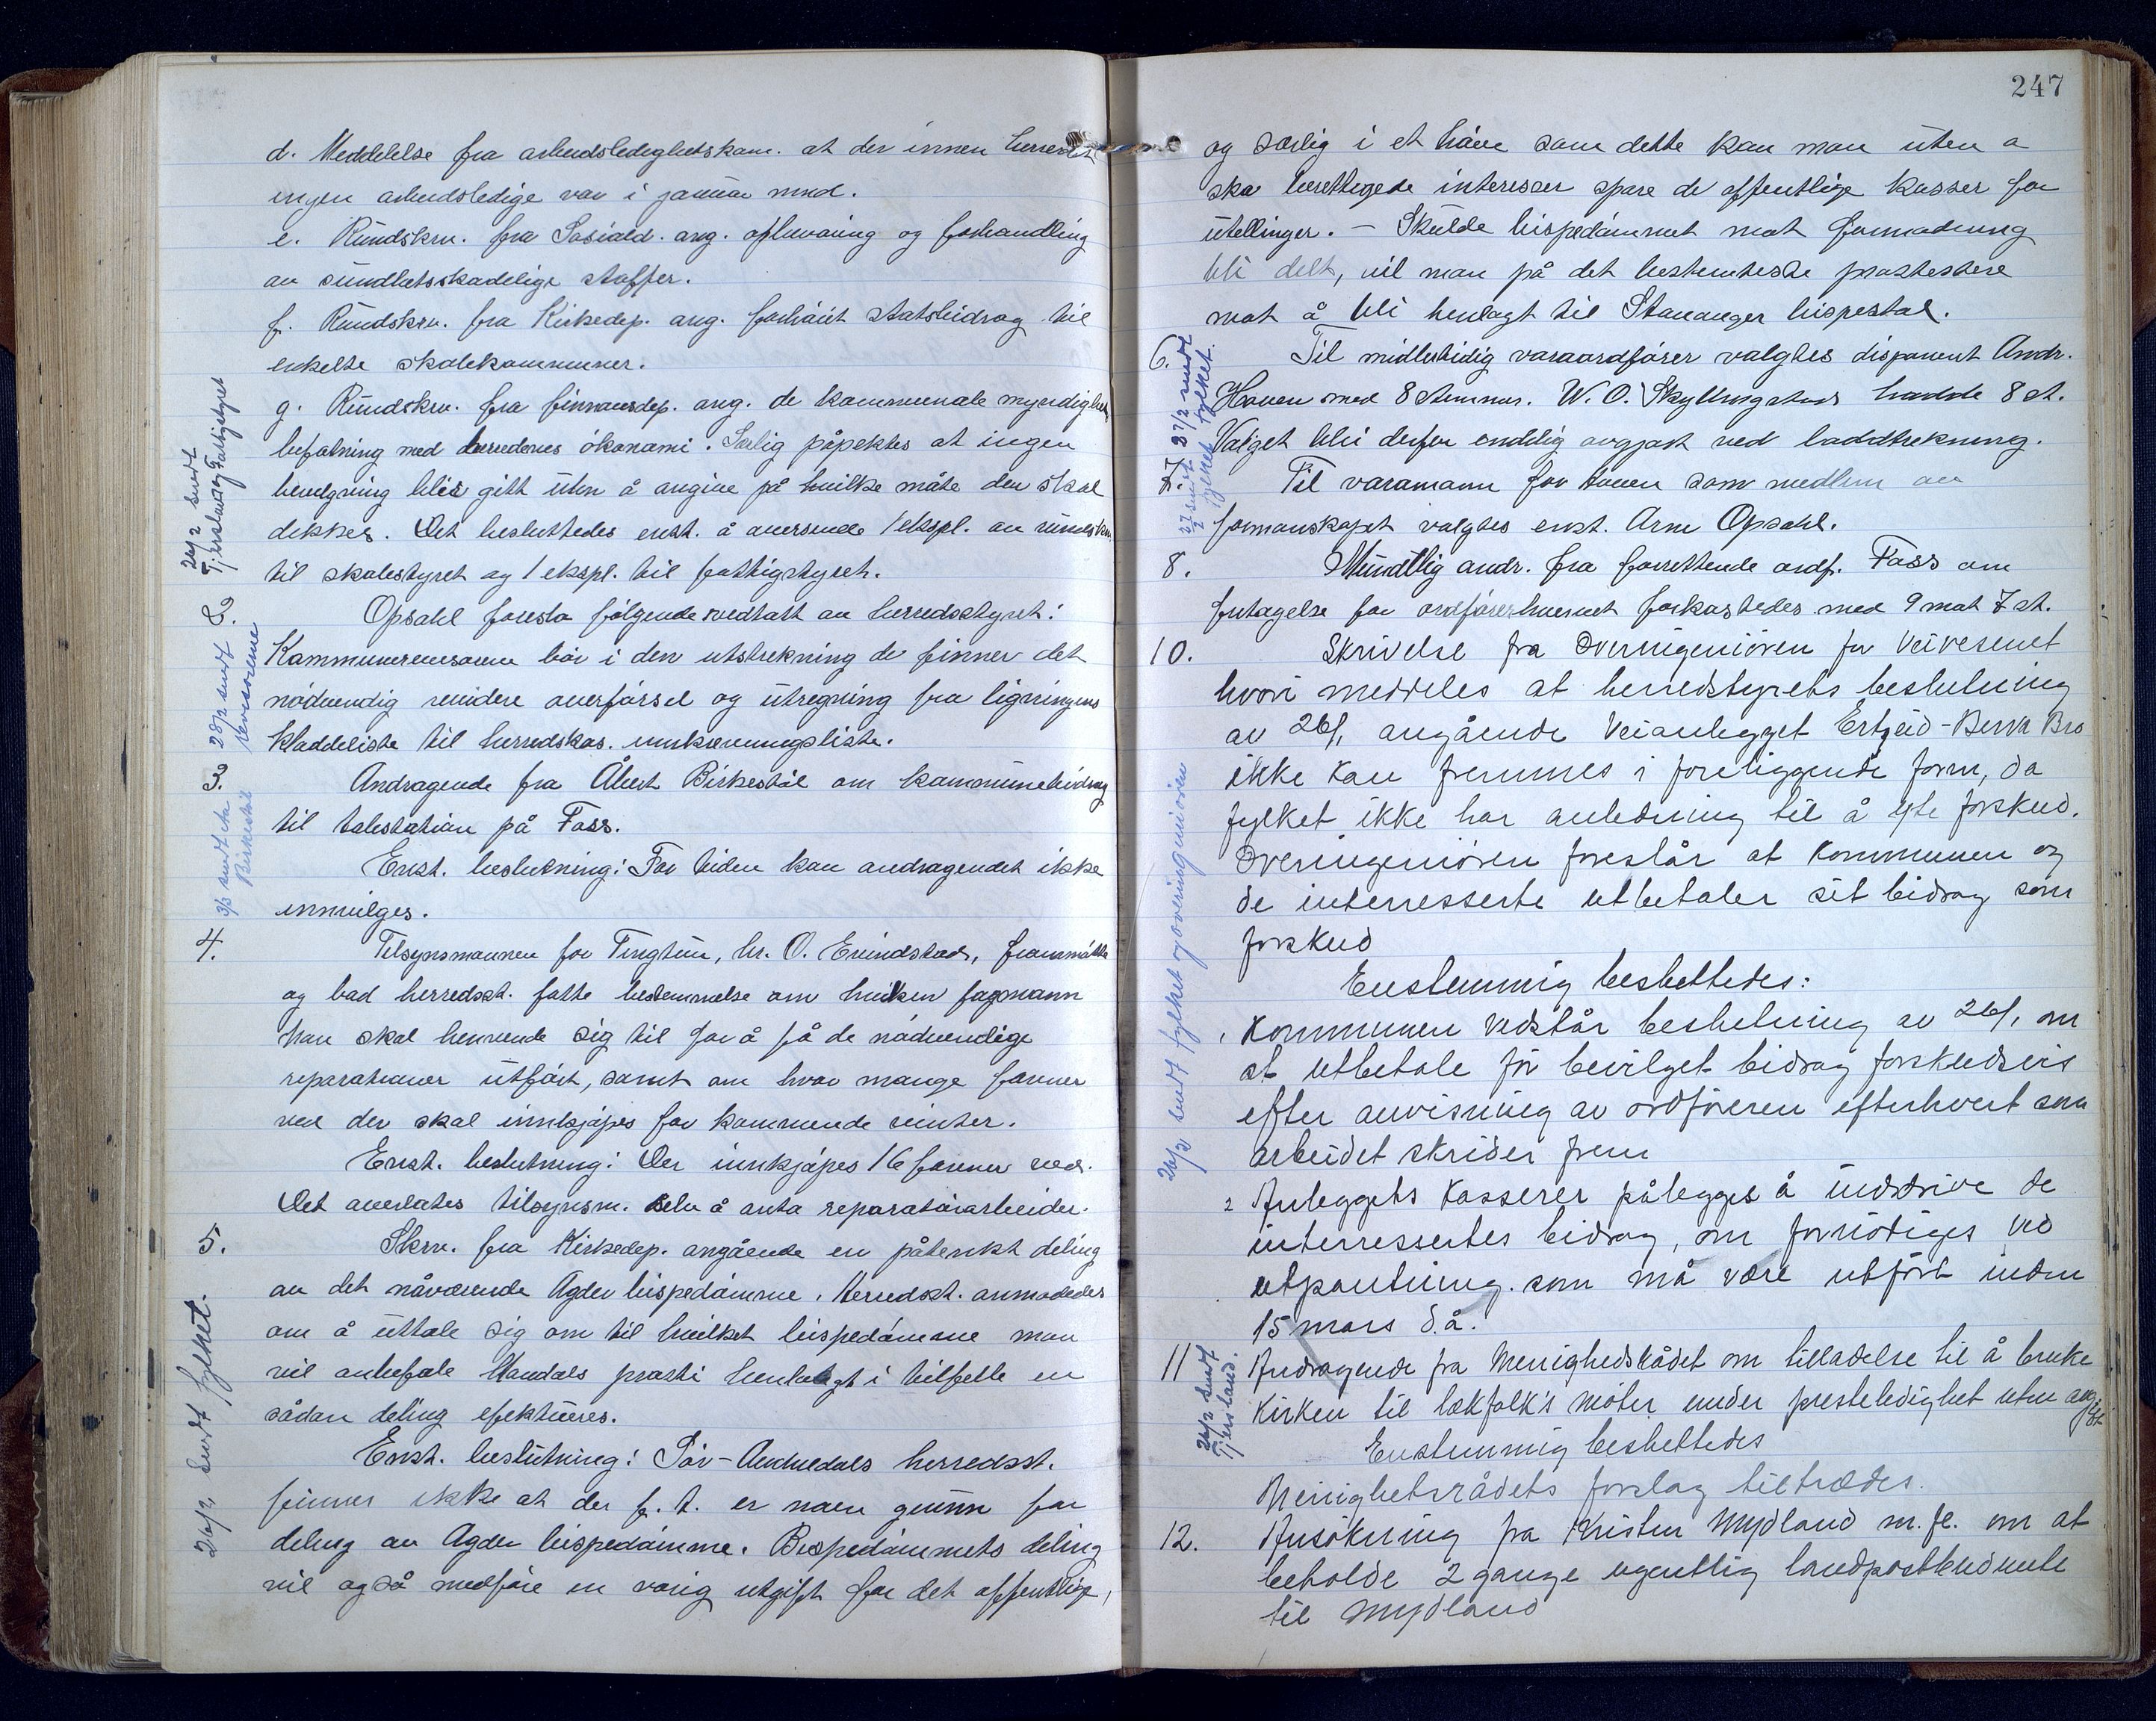 d. Meddelelse fra arbeidsledighetskom. at der innen herredet
ingen arbeidsledige var i januar mnd.
e. Rundskrv. fra Sosiald. ang. opbevaring og forhandling
av sundhetsskadelige stoffer.
f. Rundskrv. fra Kirkedep. ang. forhöiet statsbidrag til
enkelte skolekommuner.
g. Rundskrv. fra finansdep. ang. de kommunale myndighet
befatning med herredenes ökonomi. Særlig påpektes at ingen
bevilgning blir gitt uten å angive på hvilke måte den skal
dekkes. Det besluttedes enst. å oversende 1 ekspl. av rundskrv.
til skolestyret og 1 ekspl. til fattigstyret.
24/2 sendt
Tjersland og Fattigstyret
2.
Opsahl foreslo følgende vedtatt av herredsstyret:
Kommunerevisorene bör i den utstrekning de finner det
nödvendig revidere overförsel og utregning fra ligningens
kladdeliste til herredskas. innkrevningsliste.
28/2 sendt
revisorene
3.
Andragende fra Åbert Birkestöl om kommunebidrag
til talestation på Foss.
Enst. beslutning: For tiden kan andragendet ikke
innvilges.
3/3 sendt
Birkestöl
4.
Tilsynsmannen for Tingtun, hr. O. Eivindstad, frammötte
og bad herredsst. fatte bestemmelse om hvilken fagmann
han skal henvende sig til for å få de nödvendige
reparationer utfört, samt om hvor mange favner
ved der skal innkjøpes for kommende vinter.
Enst. beslutning: Der innkjøpes 16 favner ved.
Det overlates tilsynsm. selv å anta reparatörarbeider.
5.
Skrv. fra Kirkedep. angående en påtenkt deling
av det nåværende Agder bispedömme. Herredsst. anmodedes
om å uttale sig om til hvilket bispedömme man
vil anbefale Mandals prosti henlagt i tilfelle en
sådan deling efektueres.
Enst. beslutning: Sör-Audnedals herredsst.
finner ikke at der f. t. er noen grunn for
deling av Agder bispedömme. Bispedömmets deling
vil også medföre en varig utgift for det offentlige,
26/2 sendt fylket.
247
og særlig i et höve som dette kan man uten a
ska berettigede interesser spare de offentlige kasser for
utellinger. - Skulde bispedömmet mot formodning
bli delt, vil man på det bestemteste prostestere
mot å bli henlagt til Stavanger bispestol.
6.
Til midlertidig varaordförer valgtes disponent Andr.
Hoven med 8 stemmer. W. O. Skyllingstad hadde 8 st.
Valget blir derfor endelig avgjort ved loddtrekning.
27/2 sendt
fylket
7.
Til varamann for hoven som medlem av
formanskapet valgtes enst. Arne Opsahl.
27/2 sendt
fylket
8.
Mundtlig andr. fra forrettende ordf. Foss om
fritagelse for ordförerhvervet forkastedes med 9 mot 7 st.
10.
Skrivelse fra Overingeniören for Veivesenet
hvori meddeles at herredstyrets beslutning
av 26/1 angående Veianlegget Ertzeid - Berva Bro
ikke kan fremmes i foreliggende form, da
fylket ikke har anledning til å yte forskud.
Overingeniören foreslår at kommunen og
de interresserte utbetaler sit bidrag som
forskud
Enstemmig besluttedes:
1 Kommunen vedstår beslutning av 26/1 om
at utbetale för bevilget bidrag forskudsvis
efter anvisning av ordföreren efterhvert som
arbeidet skrider frem
2 Anleggets Kasserer pålegges å inddrive de
interressertes bidrag, om fornödiges ved
utpantning. som må være utfört inden
15 mars d.å.
26/2 sendt fylket og overingeniören
11
Andragende fra Menighedsrådet om tilladelse til å bruke
Kirken til lekfolk's möter under presteledighet uten avgift
Enstemmig besluttedes
Menighetsrådets forslag tiltrædes.
26/2 sendt
Tjersland.
12.
Ansökning fra Kristen Mydland m. fl. om at
beholde 2 gange ugentlig landpostbudrute
til Mydland